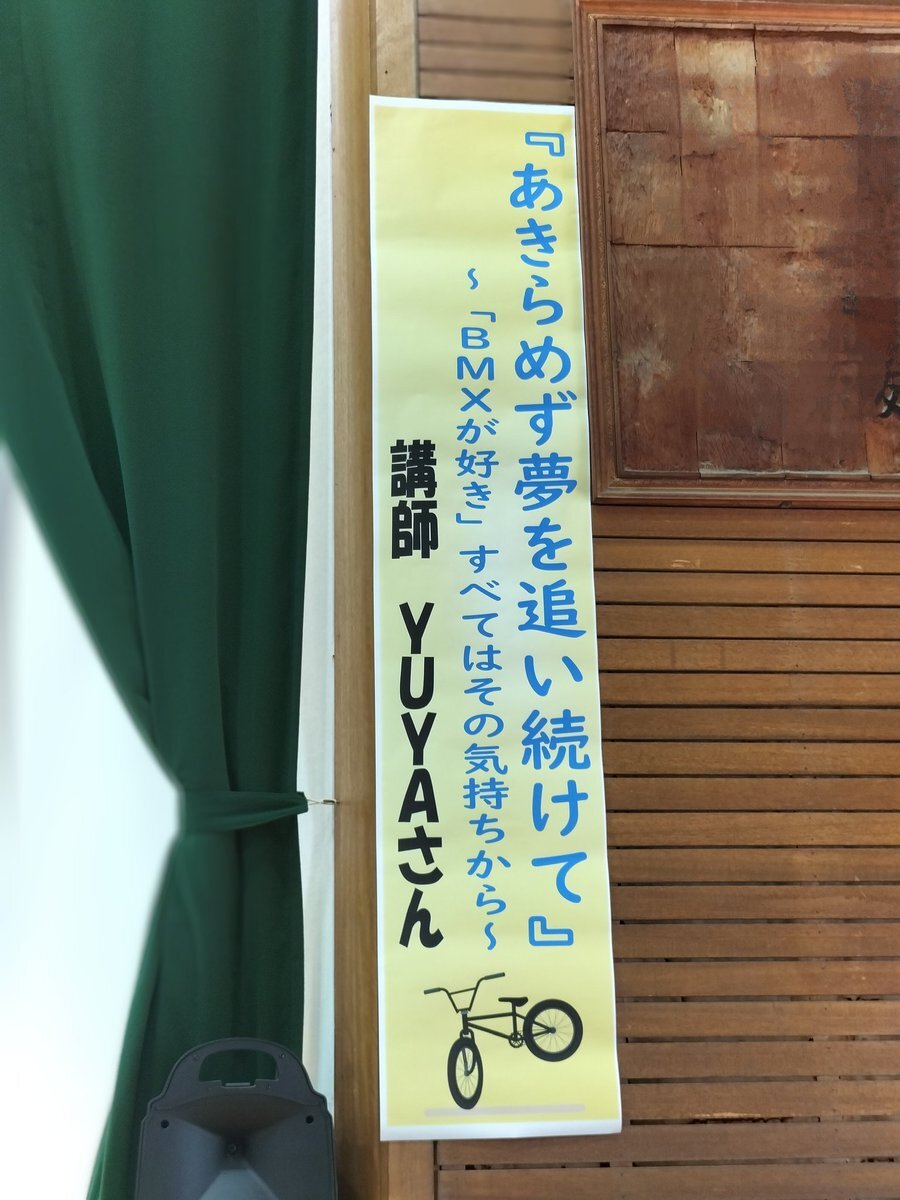 『あきらめず夢を追い続けて』
～「BMXが好き」すべてはその気持ちから～
講師 YUYAさん